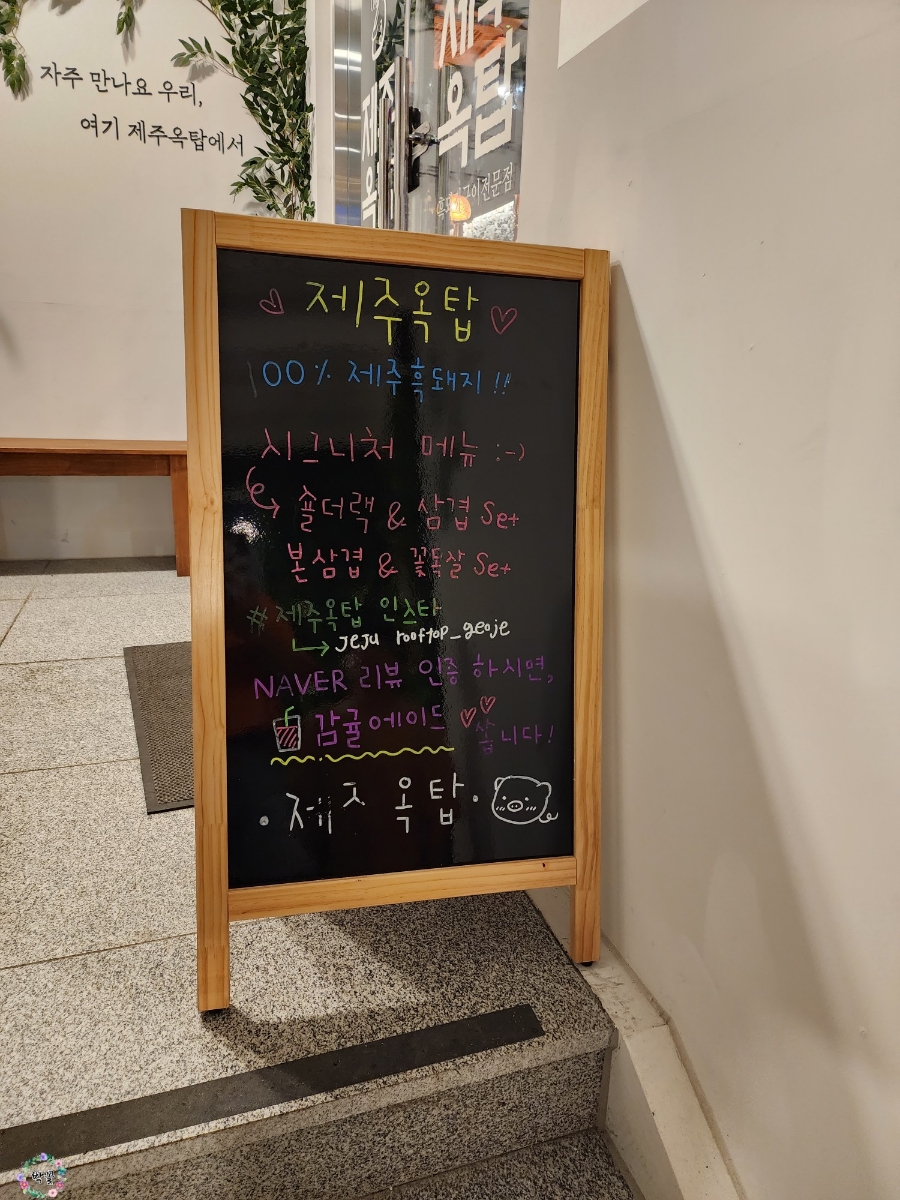 자주 만나요 우리,
여기 제주옥탑에서
제주
옥탑
제주
옥탑
♡ 제주옥탑 ♡
100% 제주흑돼지!!
시그니처 메뉴 :-)
숄더랙 & 삼겹 Set
본삼겹 & 꽃목살 Set
#제주옥탑 인스타
jeju rooftop_geoje
NAVER 리뷰 인증 하시면,
감귤에이드 ♡♡ 쏩니다!
·제주 옥탑·